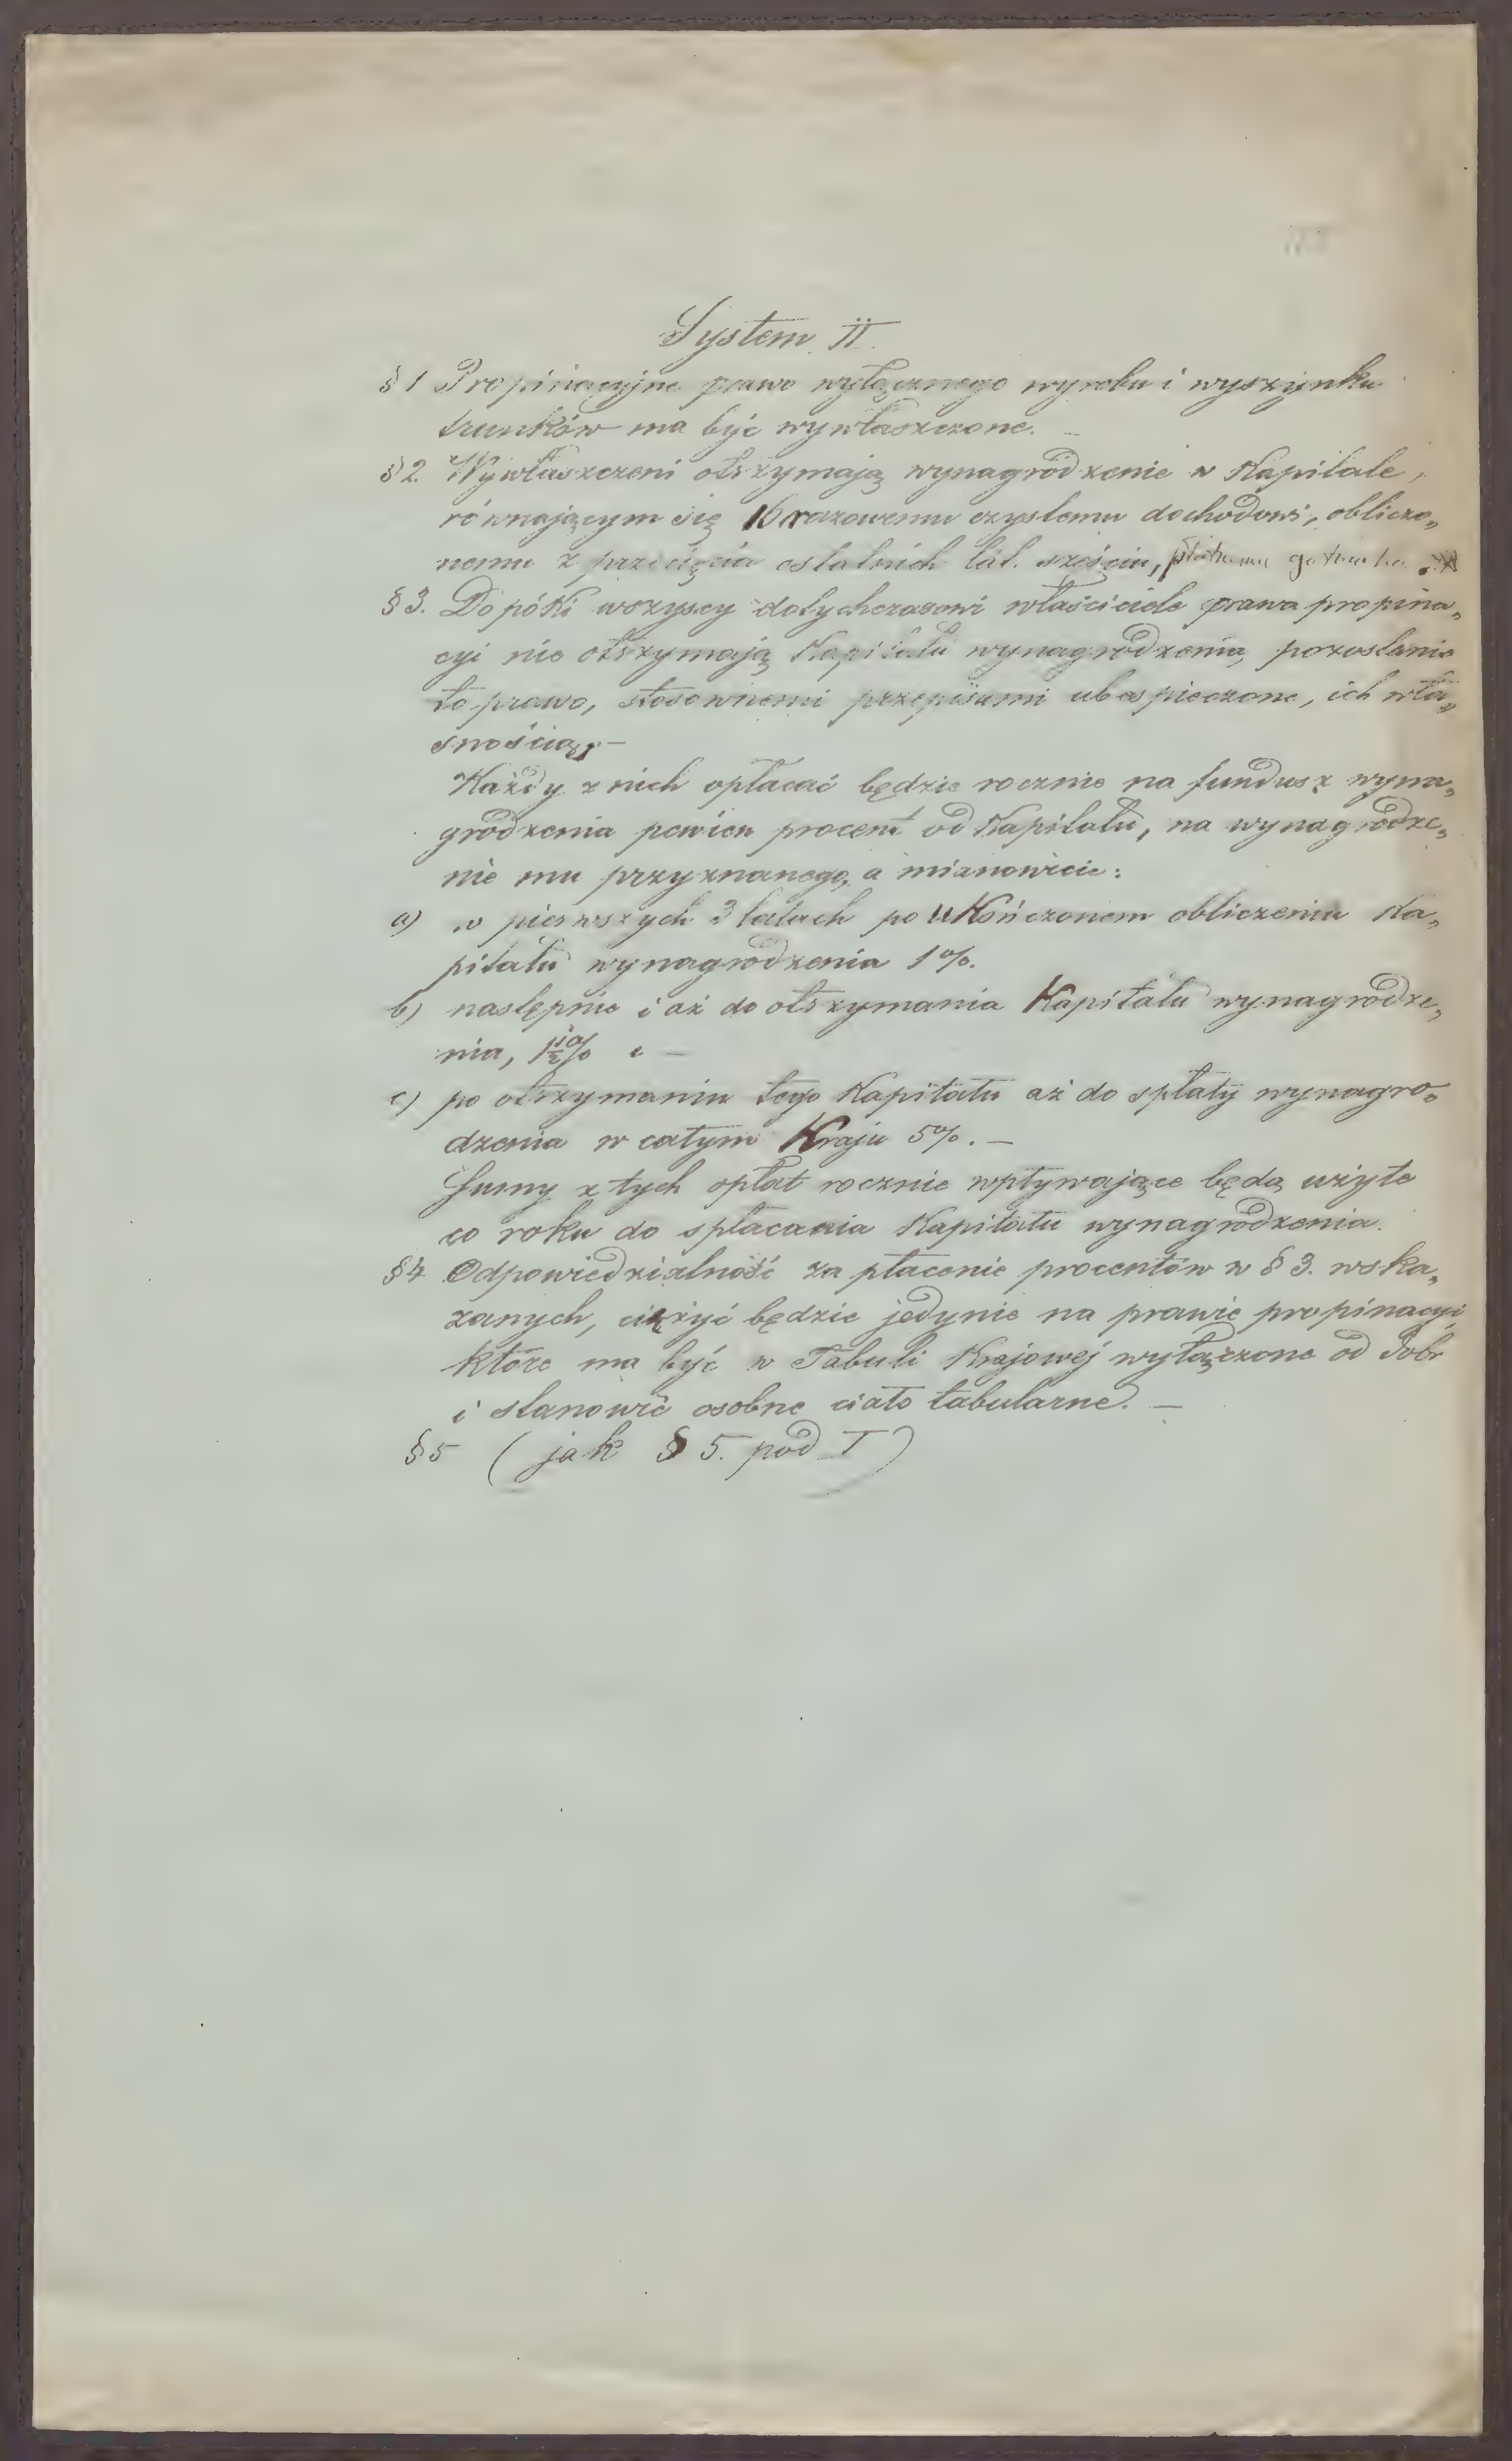 System II.
§ 1 Propinacyjne prawo wyłącznego wyrobu i wyszynku
trunków ma być wywłaszczone. —
§ 2. Wywłaszczeni otrzymają wynagrodzenie w Kapitale,
równającym się 16 razowemu czystemu dochodowi, obliczo„
nemu z przecięcia ostatnich lat sześciu, płatnemu gotówką.
§ 3. Dopóki wszyscy dotychczasowi właściciele prawa propina„
cyi nie otrzymają Kapitału wynagrodzenia, pozostanie
to prawo, stosownemi przepisami ubespieczone, ich wła„
snością. —
Każdy z nich opłacać będzie rocznie na fundusz wyna„
grodzenia pewien procent od Kapitału, na wynagrodze„
nie mu przyznanego, a mianowicie:
a) w pierwszych 3 latach po ukończonem obliczeniu Ka„
pitału wynagrodzenia 1%.
b) następnie i aż do otrzymania Kapitału wynagrodze„
nia, 1½% i —
c) po otrzymaniu tego Kapitału aż do spłaty wynagro„
dzenia w całym Kraju 5%. —
Sumy z tych opłat rocznie wpływające będą użyte
co roku do spłacania Kapitału wynagrodzenia.
§ 4 Odpowiedzialność za płacenie procentów w § 3. wska„
zanych, ciężyć będzie jedynie na prawie propinacyi,
które ma być w Tabuli Krajowej wyłączone od dóbr
i stanowić osobne ciało tabularne. —
§ 5 (jak § 5. pod I)